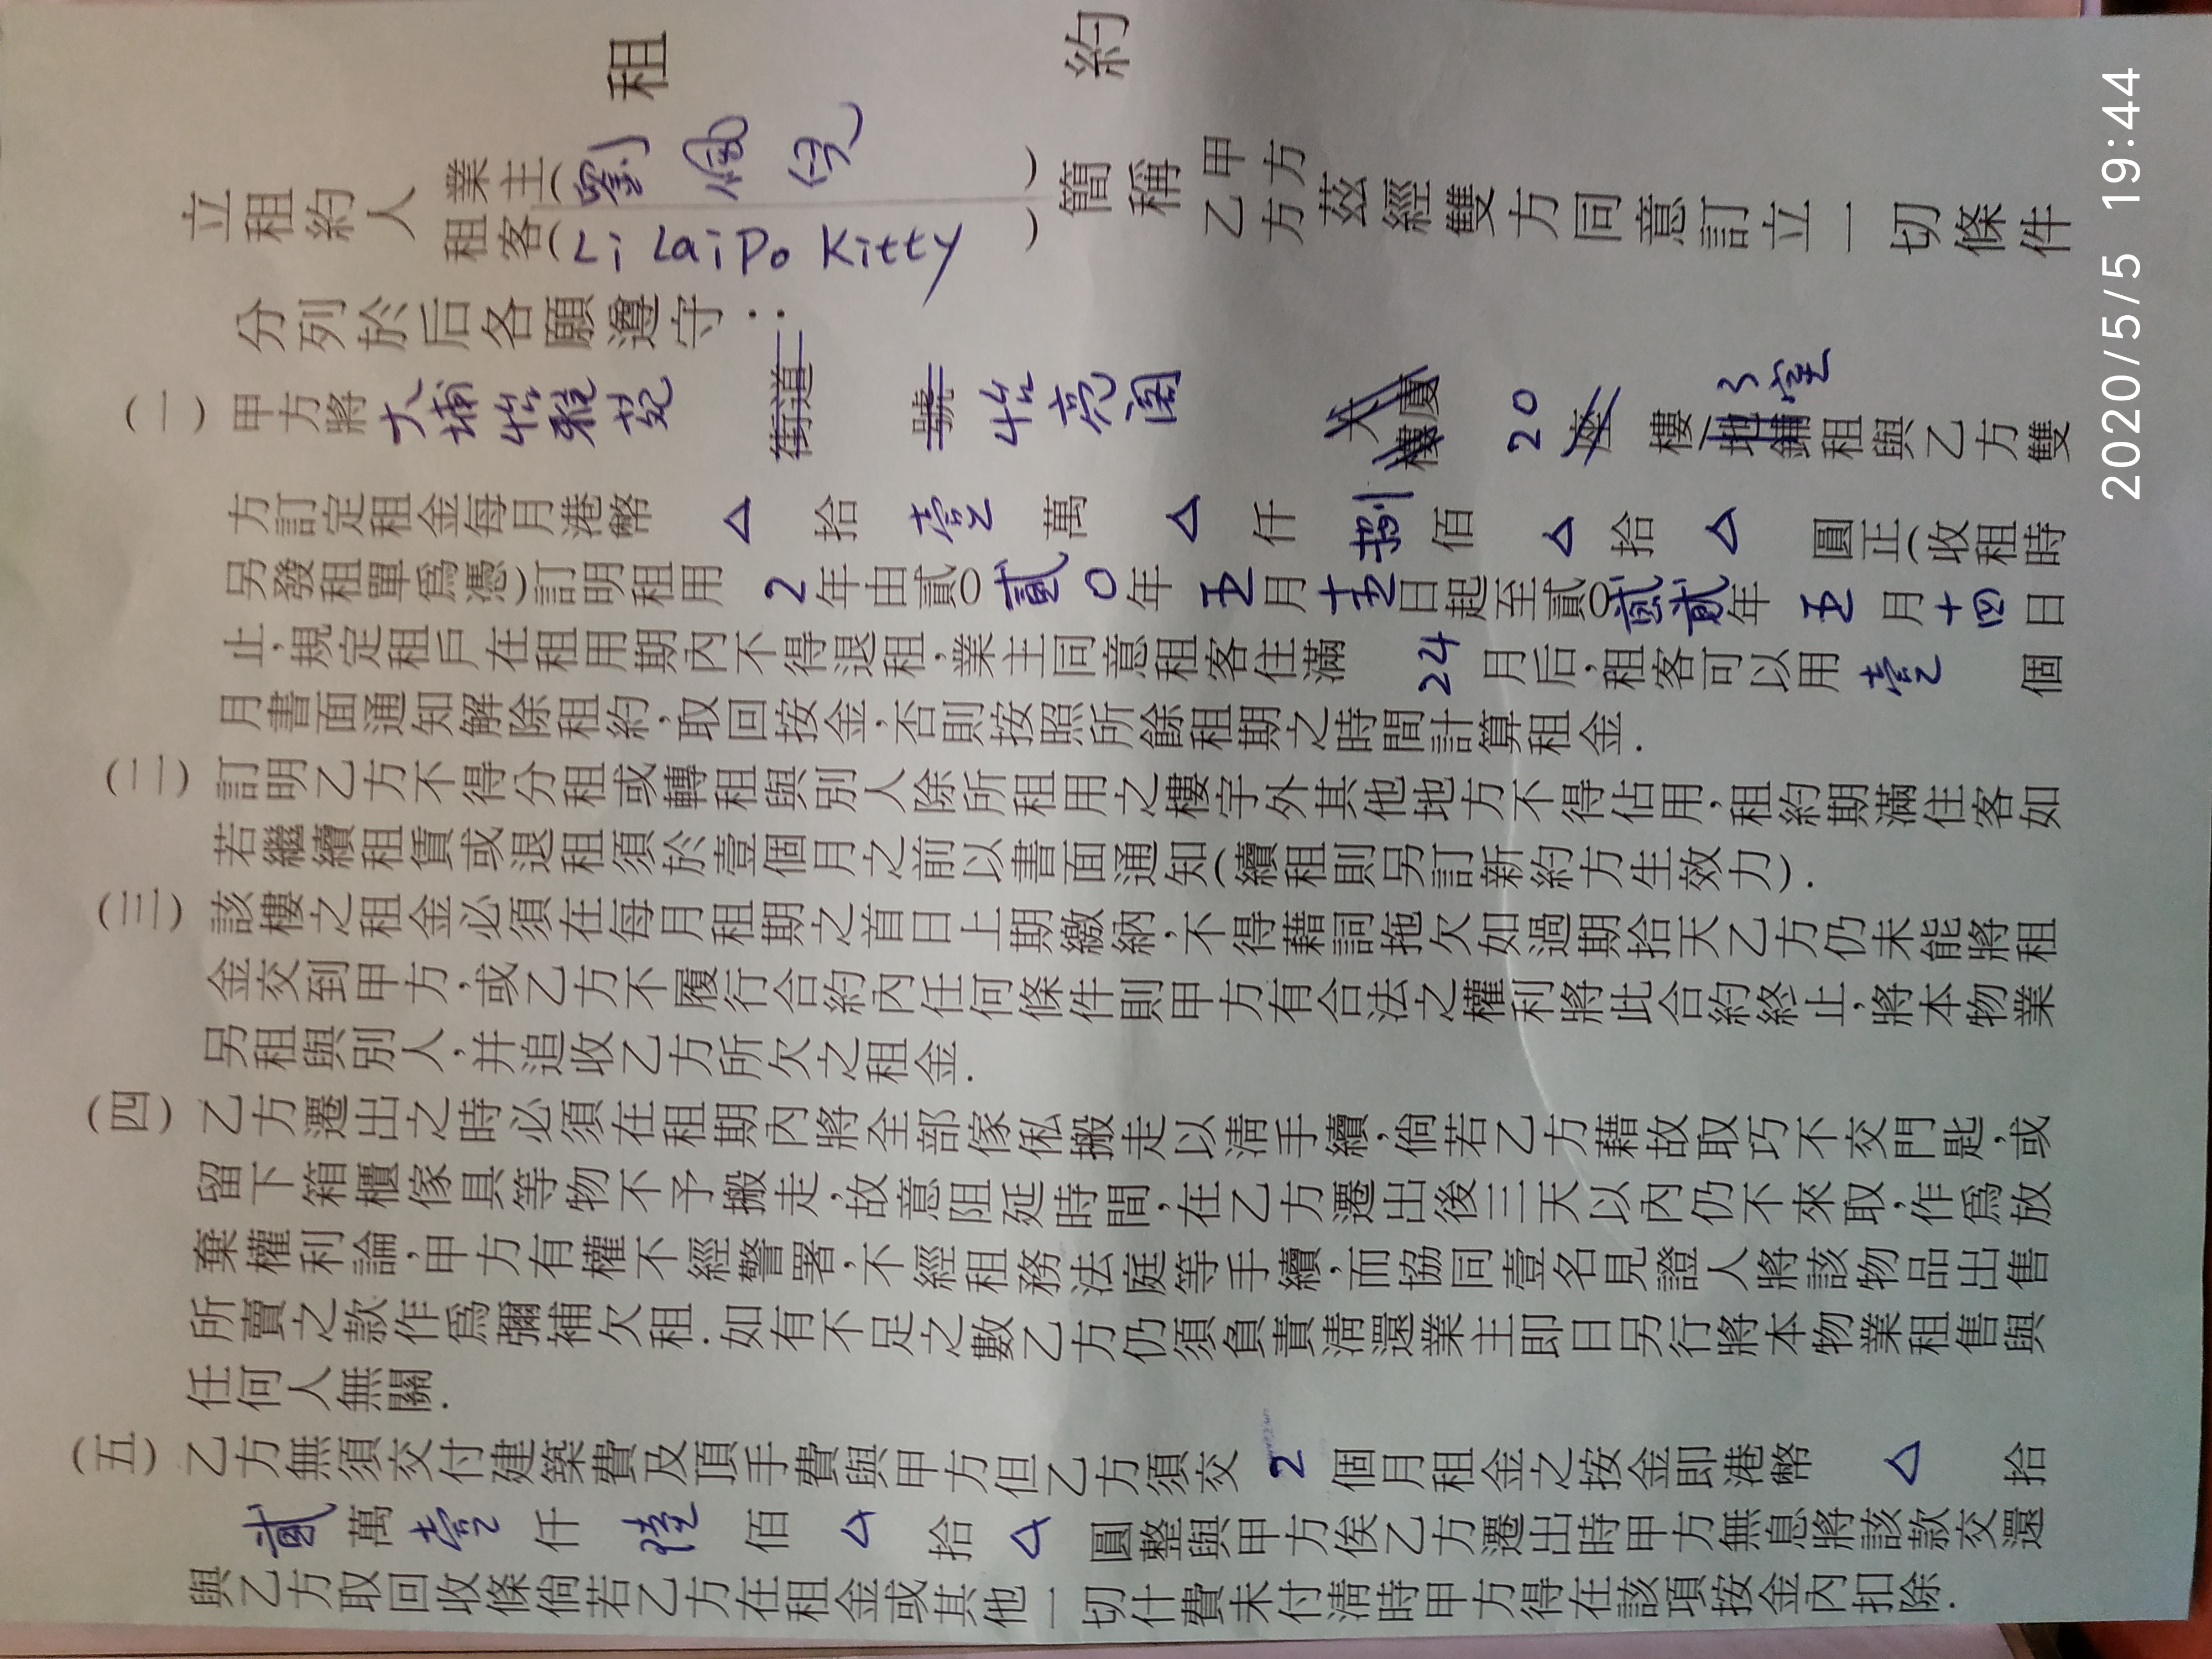 租 約
立租約人 業主(劉 ) 簡稱 甲方
租客(Li LaiPo Kitty ) 乙方 茲經雙方同意訂立一切條件
分列於后各願遵守:
(一) 甲方將 大埔怡雅苑 街道 號 怡亮閣 大廈 樓 20 座 樓 地鋪 3室 租與乙方雙
方訂定租金每月港幣 △ 拾 壹 萬 △ 仟 捌 佰 △ 拾 △ 圓正(收租時
另發租單爲憑)訂明租用 2 年由貳○貳○年 五 月 十五 日起至貳○貳貳年 五 月 十四 日
止,規定租戶在租用期內不得退租,業主同意租客住滿 24 月后,租客可以用 壹 個
月書面通知解除租約,取回按金,否則按照所餘租期之時間計算租金.
(二) 訂明乙方不得分租或轉租與別人除所租用之樓宇外其他地方不得佔用,租約期滿住客如
若繼續租賃或退租須於壹個月之前以書面通知(續租則另訂新約方生效力).
(三) 該樓之租金必須在每月租期之首日上期繳納,不得藉詞拖欠如過期拾天乙方仍未能將租
金交到甲方,或乙方不履行合約內任何條件則甲方有合法之權利將此合約終止,將本物業
另租與別人,并追收乙方所欠之租金.
(四) 乙方遷出之時必須在租期內將全部傢俬搬走以淸手續,倘若乙方藉故取巧不交門匙,或
留下箱櫃傢具等物不予搬走,故意阻延時間,在乙方遷出後三天以內仍不來取,作爲放
棄權利論,甲方有權不經警署,不經租務法庭等手續,而協同壹名見證人將該物品出售
所賣之款作爲彌補欠租.如有不足之數乙方仍須負責淸還業主即日另行將本物業租售與
任何人無關.
(五) 乙方無須交付建築費及頂手費與甲方但乙方須交 2 個月租金之按金即港幣 △ 拾
貳 萬 壹 仟 陸 佰 △ 拾 △ 圓整與甲方俟乙方遷出時甲方無息將該款交還
與乙方取回收條倘若乙方在租金或其他一切什費未付淸時甲方得在該項按金內扣除.
2020/5/5 19:44